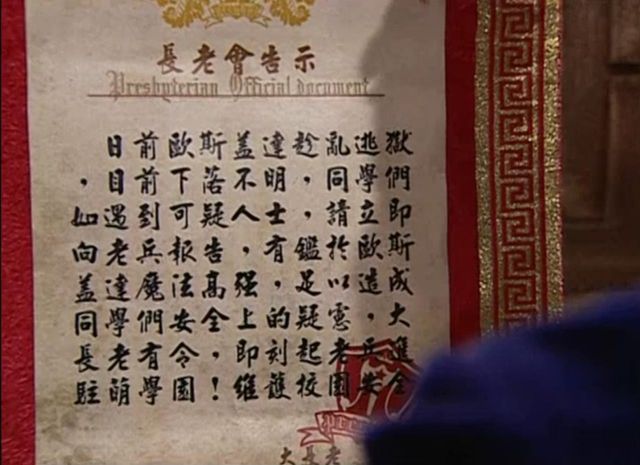 長老會告示
Presbyterian Official document
日前歐斯盖達趁亂逃獄
，目前下落不明，同學們
如遇到可疑人士，請立即
向老兵報告，有鑑於歐斯
盖達魔法高强，足以造成
同學們安全上的疑慮，大
長老有令，即刻起老兵進
駐萌學園！維護校園安全
大長老